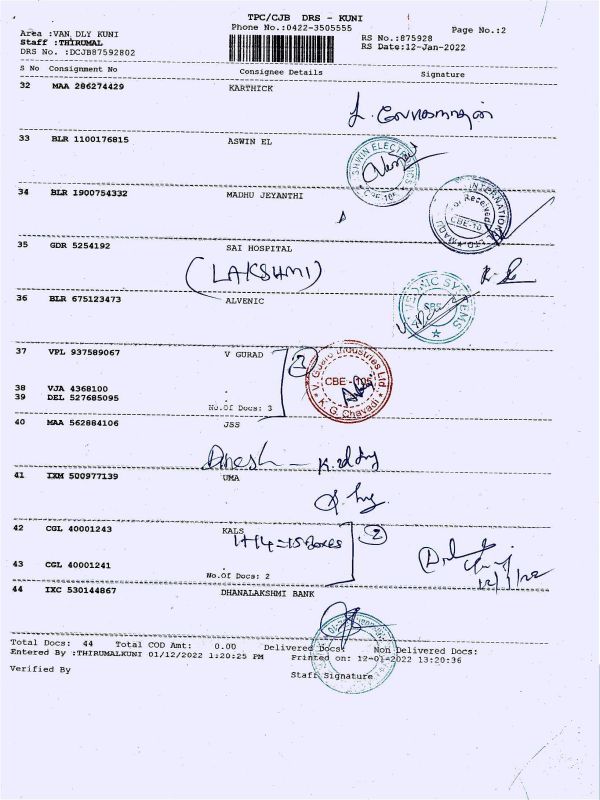 TPC/CJB DRS - KUNI
Phone No.:0422-3505555
Page No.:2
Area :VAN DLY KUNI
Staff :THIRUMAL
DRS No. :DCJB87592802
RS No.:875928
RS Date:12-Jan-2022
S No Consignment No Consignee Details Signature
32 MAA 286274429 KARTHICK
33 BLR 1100176815 ASWIN EL
34 BLR 1900754332 MADHU JEYANTHI
INTERNATIONAL
For Received
CBE-10
35 GDR 5254192 SAI HOSPITAL
(LAKSHMI)
36 BLR 675123473 ALVENIC
37 VPL 937589067 V GURAD
3
V. Guard Industries Ltd.
CBE - 105
K. G. Chavadi
38 VJA 4368100 .
39 DEL 527685095 .
No.Of Docs: 3
40 MAA 562884106 JSS
Dinesh -
41 IXM 500977139 UMA
42 CGL 40001243 KALS
1+14=15 Boxes
2
43 CGL 40001241 .
No.Of Docs: 2
12/1/22
44 IXC 530144867 DHANALAKSHMI BANK
Total Docs: 44 Total COD Amt: 0.00 Delivered Docs: Non Delivered Docs:
Entered By :THIRUMALKUNI 01/12/2022 1:20:25 PM Printed on: 12-01-2022 13:20:36
Verified By Staff Signature